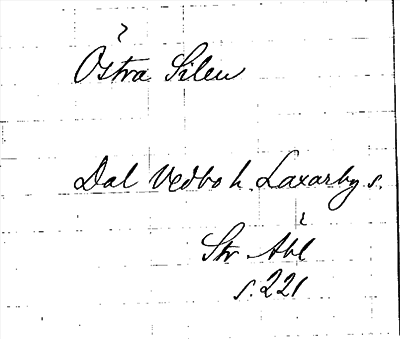 Östra Silen
Dal Vedbo h. Laxarby s.
Str Abl
s. 221